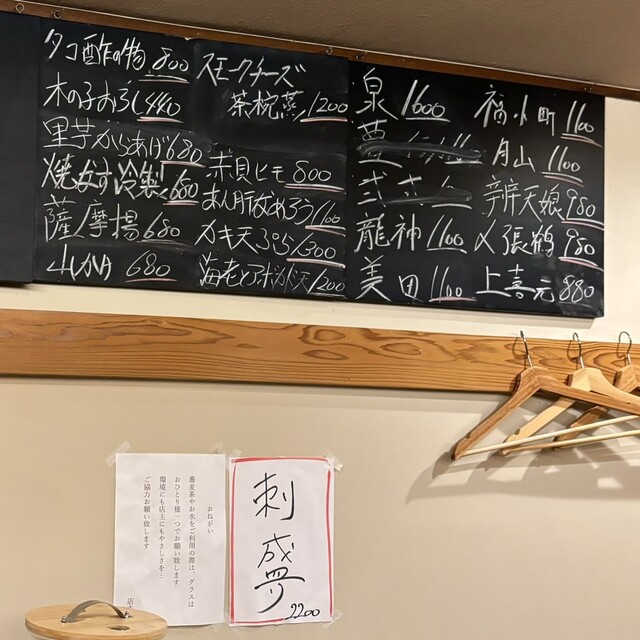 タコ酢の物 800
木の子おろし 440
里芋からあげ 680
焼なす冷製 680
薩摩揚 680
680
スモークチーズ
茶椀蒸 1200
赤貝ヒモ 800
あん肝なめろう 1100
カキ天ぷら 1300
海老とアボカド天 1200
泉 1600
龍神 1100
美田 1100
福小町 1100
月山 1100
辨天娘 980
〆張鶴 980
上喜元 880
おねがい
蕎麦茶やお水をご利用の際は、グラスは
おひとり様一つでお願い致します
環境にも店主にもやさしさを…
ご協力お願い致します
店
刺盛
2200